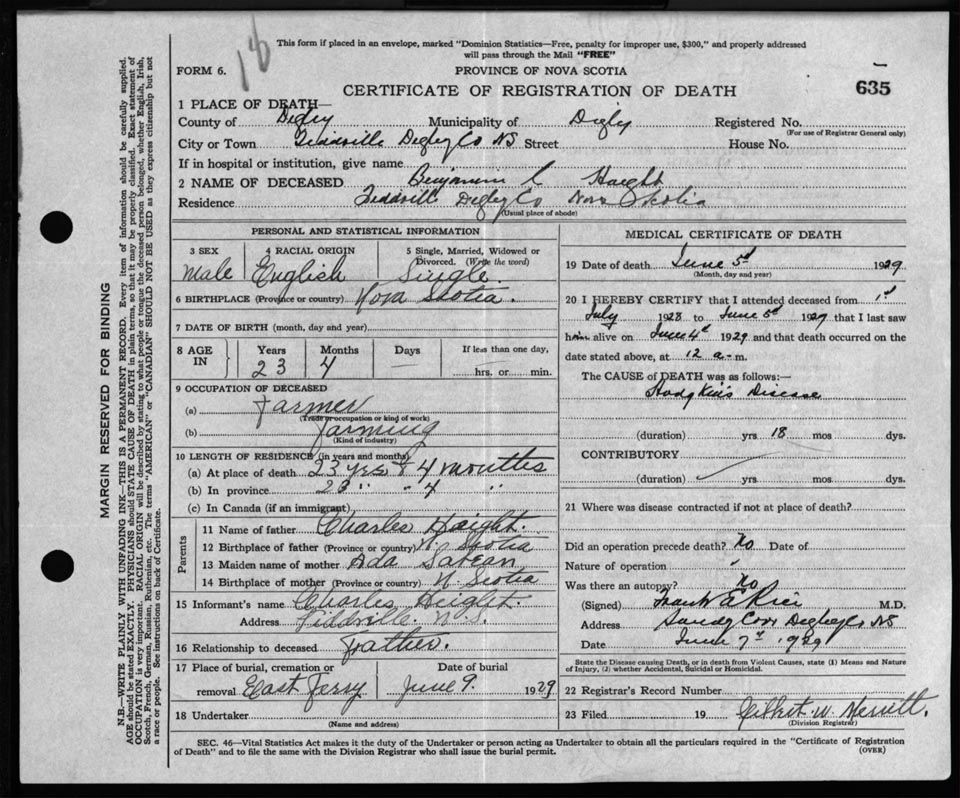 18
This form if placed in an envelope, marked "Dominion Statistics—Free, penalty for improper use, $300," and properly addressed
will pass through the Mail "FREE"
FORM 6.
PROVINCE OF NOVA SCOTIA
CERTIFICATE OF REGISTRATION OF DEATH
635
1 PLACE OF DEATH—
County of Digby Municipality of Digby Registered No.
(For use of Registrar General only)
City or Town Tiddville Digby Co NS Street House No.
If in hospital or institution, give name
2 NAME OF DECEASED Benjamin C Haight
Residence Tiddville Digby Co Nova Scotia
(Usual place of abode)
PERSONAL AND STATISTICAL INFORMATION
3 SEX 4 RACIAL ORIGIN 5 Single, Married, Widowed or
Divorced. (Write the word)
Male English Single
6 BIRTHPLACE (Province or country) Nova Scotia.
7 DATE OF BIRTH (month, day and year)
8 AGE IN Years Months Days If less than one day,
23 4 — hrs. or min.
9 OCCUPATION OF DECEASED
(a) Farmer
(Trade or occupation or kind of work)
(b) Farming
(Kind of industry)
10 LENGTH OF RESIDENCE (in years and months)
(a) At place of death 23 yrs & 4 months
(b) In province 23 " " 4 "
(c) In Canada (if an immigrant)
Parents
11 Name of father Charles Haight.
12 Birthplace of father (Province or country) N. Scotia
13 Maiden name of mother Ada
14 Birthplace of mother (Province or country) N. Scotia
15 Informant's name Charles Height.
Address Tiddville. N.S.
16 Relationship to deceased Father.
17 Place of burial, cremation or Date of burial
removal East Ferry June 9. 1929
18 Undertaker
(Name and address)
MEDICAL CERTIFICATE OF DEATH
19 Date of death June 5d 1929
(Month, day and year)
20 I HEREBY CERTIFY that I attended deceased from 1st
July 1928 to June 5d 1929 that I last saw
him alive on June 4d 1929 and that death occurred on the
date stated above, at 12 a. m.
The CAUSE of DEATH was as follows:—
Hodgkin's Disease
(duration) yrs 18 mos dys.
CONTRIBUTORY
(duration) yrs mos dys.
21 Where was disease contracted if not at place of death?
Did an operation precede death? No Date of
Nature of operation
Was there an autopsy? No
(Signed) Frank A Rice M.D.
Address Sandy Cove Digby Co NS
Date June 7d 1929
State the Disease causing Death, or in death from Violent Causes, state (1) Means and Nature
of Injury, (2) whether Accidental, Suicidal or Homicidal.
22 Registrar's Record Number
23 Filed 19 Gilbert W. Merritt.
(Division Registrar)
SEC. 46—Vital Statistics Act makes it the duty of the Undertaker or person acting as Undertaker to obtain all the particulars required in the "Certificate of Registration
of Death" and to file the same with the Division Registrar who shall issue the burial permit.
(OVER)
MARGIN RESERVED FOR BINDING
N.B.—WRITE PLAINLY WITH UNFADING INK—THIS IS A PERMANENT RECORD. Every item of information should be carefully supplied.
AGE should be stated EXACTLY. PHYSICIANS should STATE CAUSE OF DEATH in plain terms, so that it may be properly classified. Exact statement of
OCCUPATION is very important. RACIAL ORIGIN will be described by stating to what people or tongue the deceased person belonged, whether English, Irish,
Scotch, French, German, Russian, Ruthenian, etc. The terms "AMERICAN" or "CANADIAN" SHOULD NOT BE USED as they express citizenship but not
a race or people. See instructions on back of Certificate.